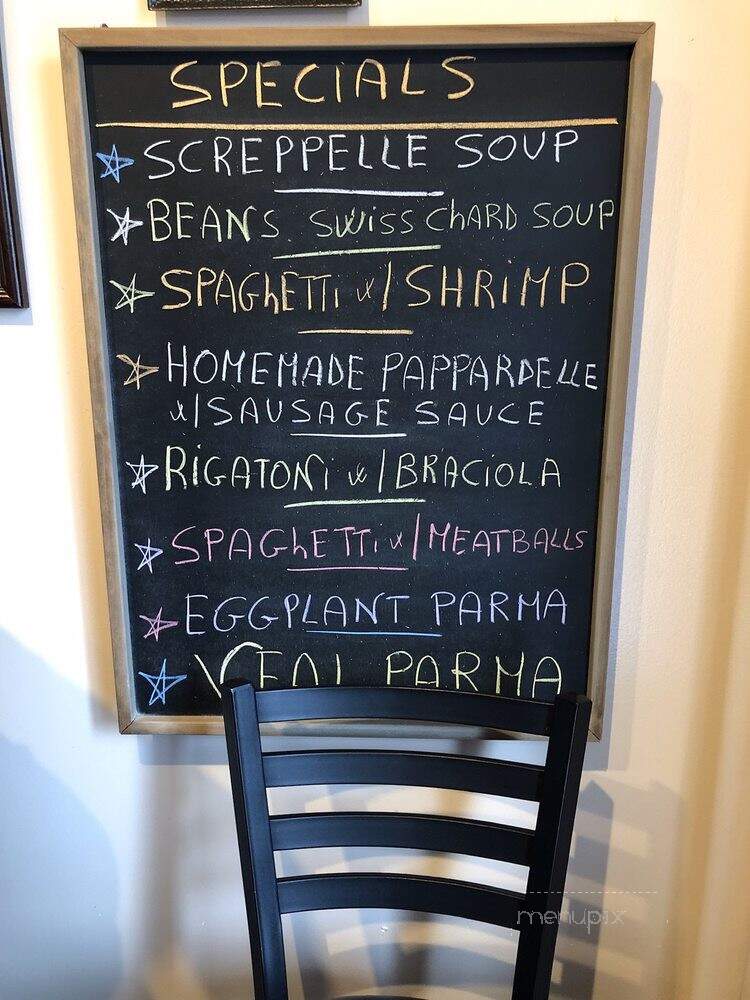 SPECIALS
SCREPPELLE SOUP
BEANS SWISS CHARD SOUP
SPAGHETTI W/SHRIMP
HOMEMADE PAPPARDELLE
W/SAUSAGE SAUCE
RIGATONI W/BRACIOLA
SPAGHETTI W/MEATBALLS
EGGPLANT PARMA
VEAL PARMA
menupix